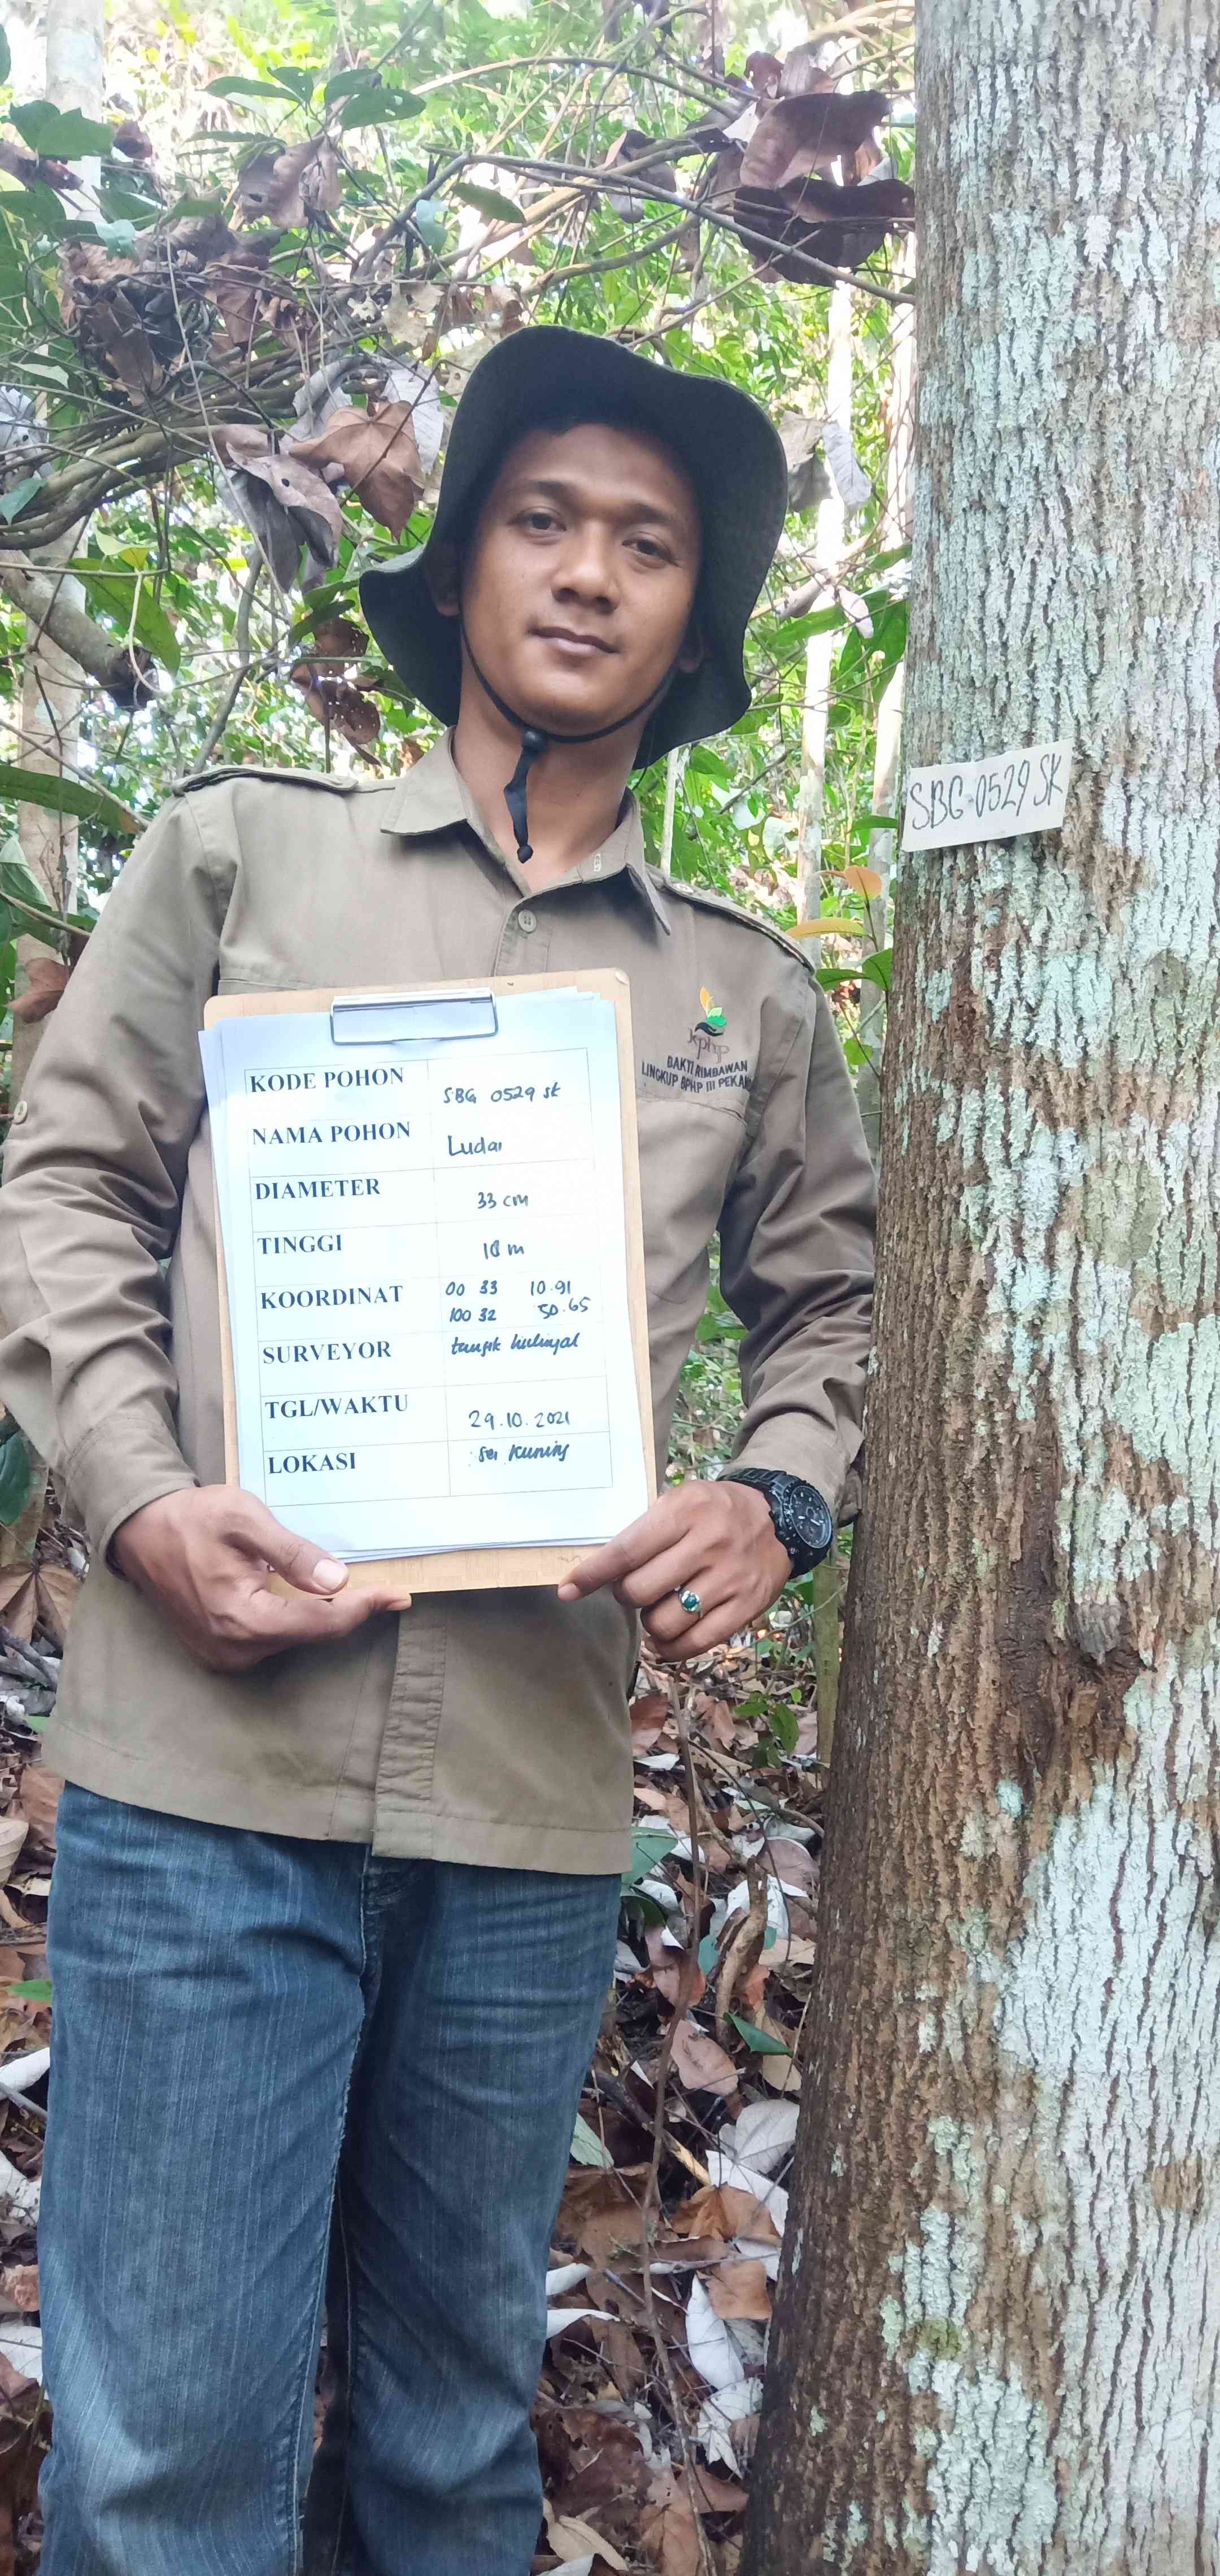 SBG-0529 SK
kphp
BAKTI RIMBAWAN
LINGKUP BPHP III PEKAN
KODE POHON SBG 0529 SK
NAMA POHON Ludai
DIAMETER 33 cm
TINGGI 18 m
KOORDINAT 00 33 10.91
100 32 50.65
SURVEYOR
TGL/WAKTU 29.10.2021
LOKASI Sei Kuning